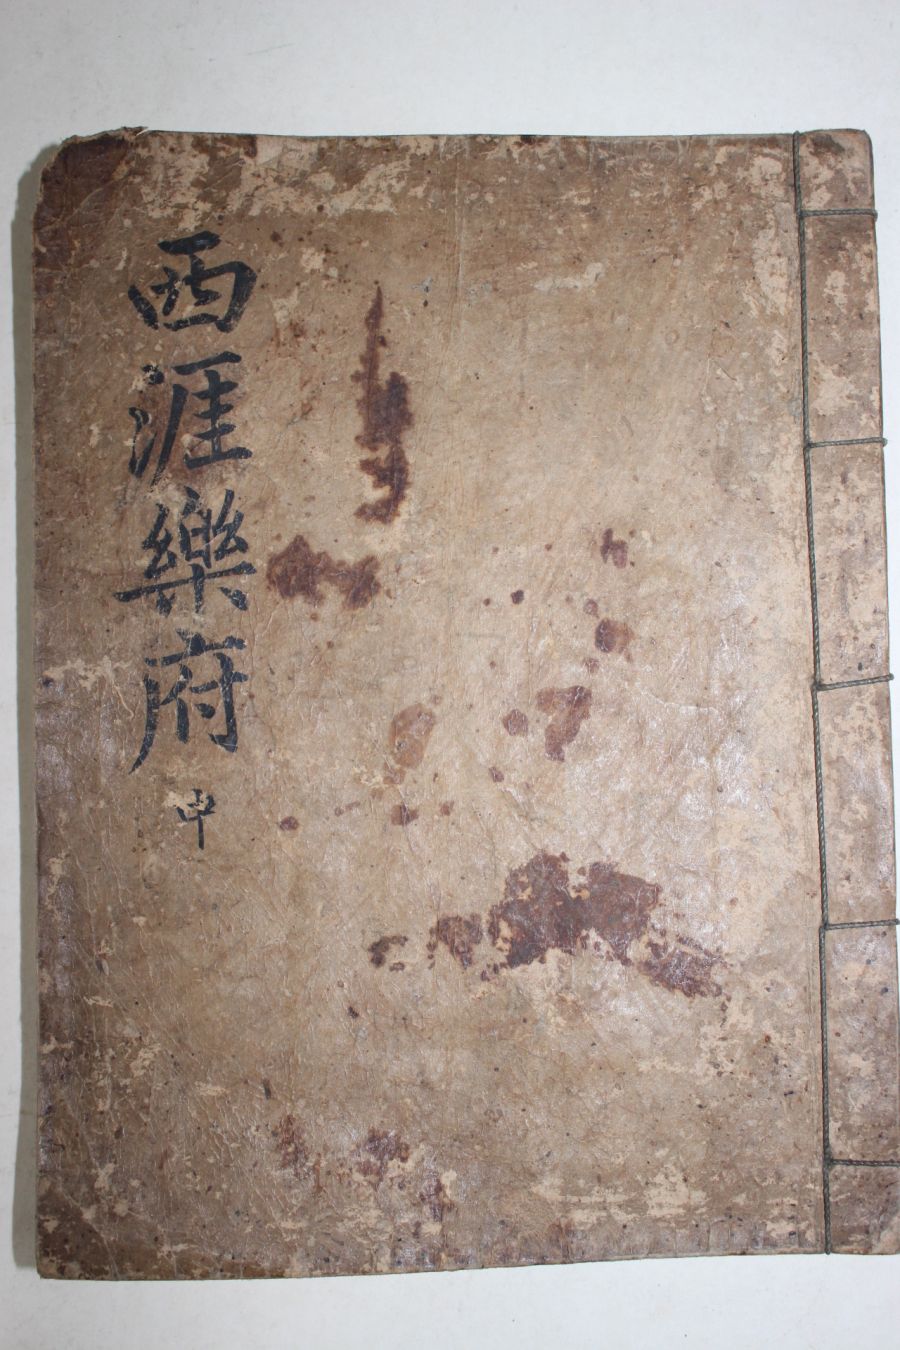 西涯樂府 中